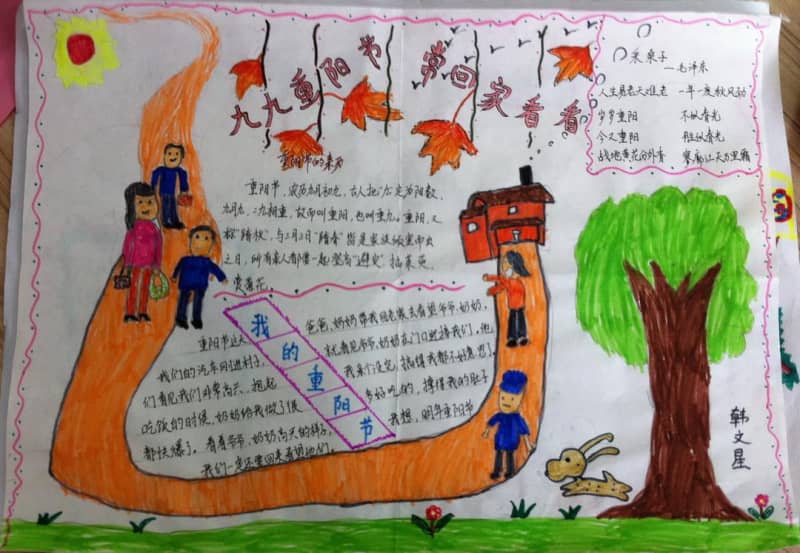 九九重阳节 常回家看看
采桑子
—毛泽东
人生易老天难老 一年一度秋风劲
岁岁重阳 不似春光
今又重阳 胜似春光
战地黄花分外香 寥廓江天万里霜
重阳节的来历
重阳节，农历九月初九，古人把"九"定为阳数，
九月九，二九相重，故而叫重阳，也叫重九。重阳，又
称"踏秋"，与三月三日"踏春"皆是家族倾室而出
之日，所有亲人都要一起登高"避灾"插茱萸、
赏菊花。
我的重阳节
重阳节这天 爸爸、妈妈带我回老家去看望爷爷、奶奶，
我们的汽车刚进村子， 就看见爷爷、奶奶在门口迎接我们，他
们看见我们非常高兴，抱起 我亲个没完，搞得我都不好意思了。
吃饭的时候，奶奶给我做了很 多好吃的，撑得我的肚子
都快爆了，看着爷爷、奶奶高兴的样子， 我想，明年重阳节
我们一定还要回来看望他们。
韩文星